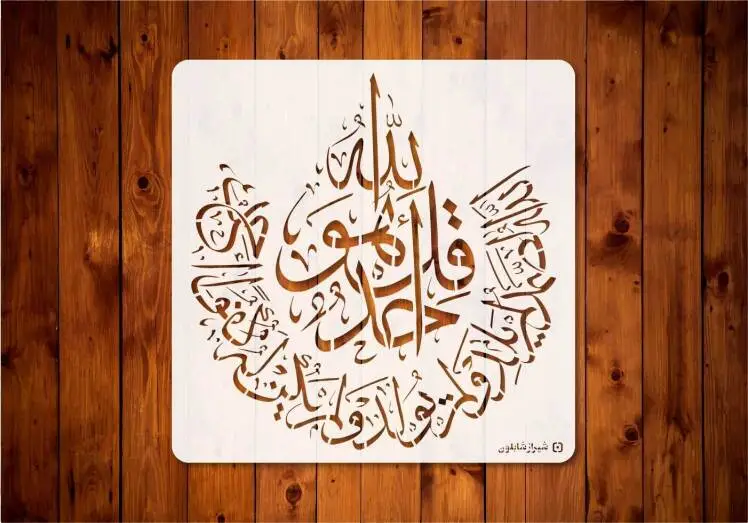 قل هو الله أحد
الله الصمد لم يلد ولم يولد ولم يكن له كفوا أحد
شیراز شابلون